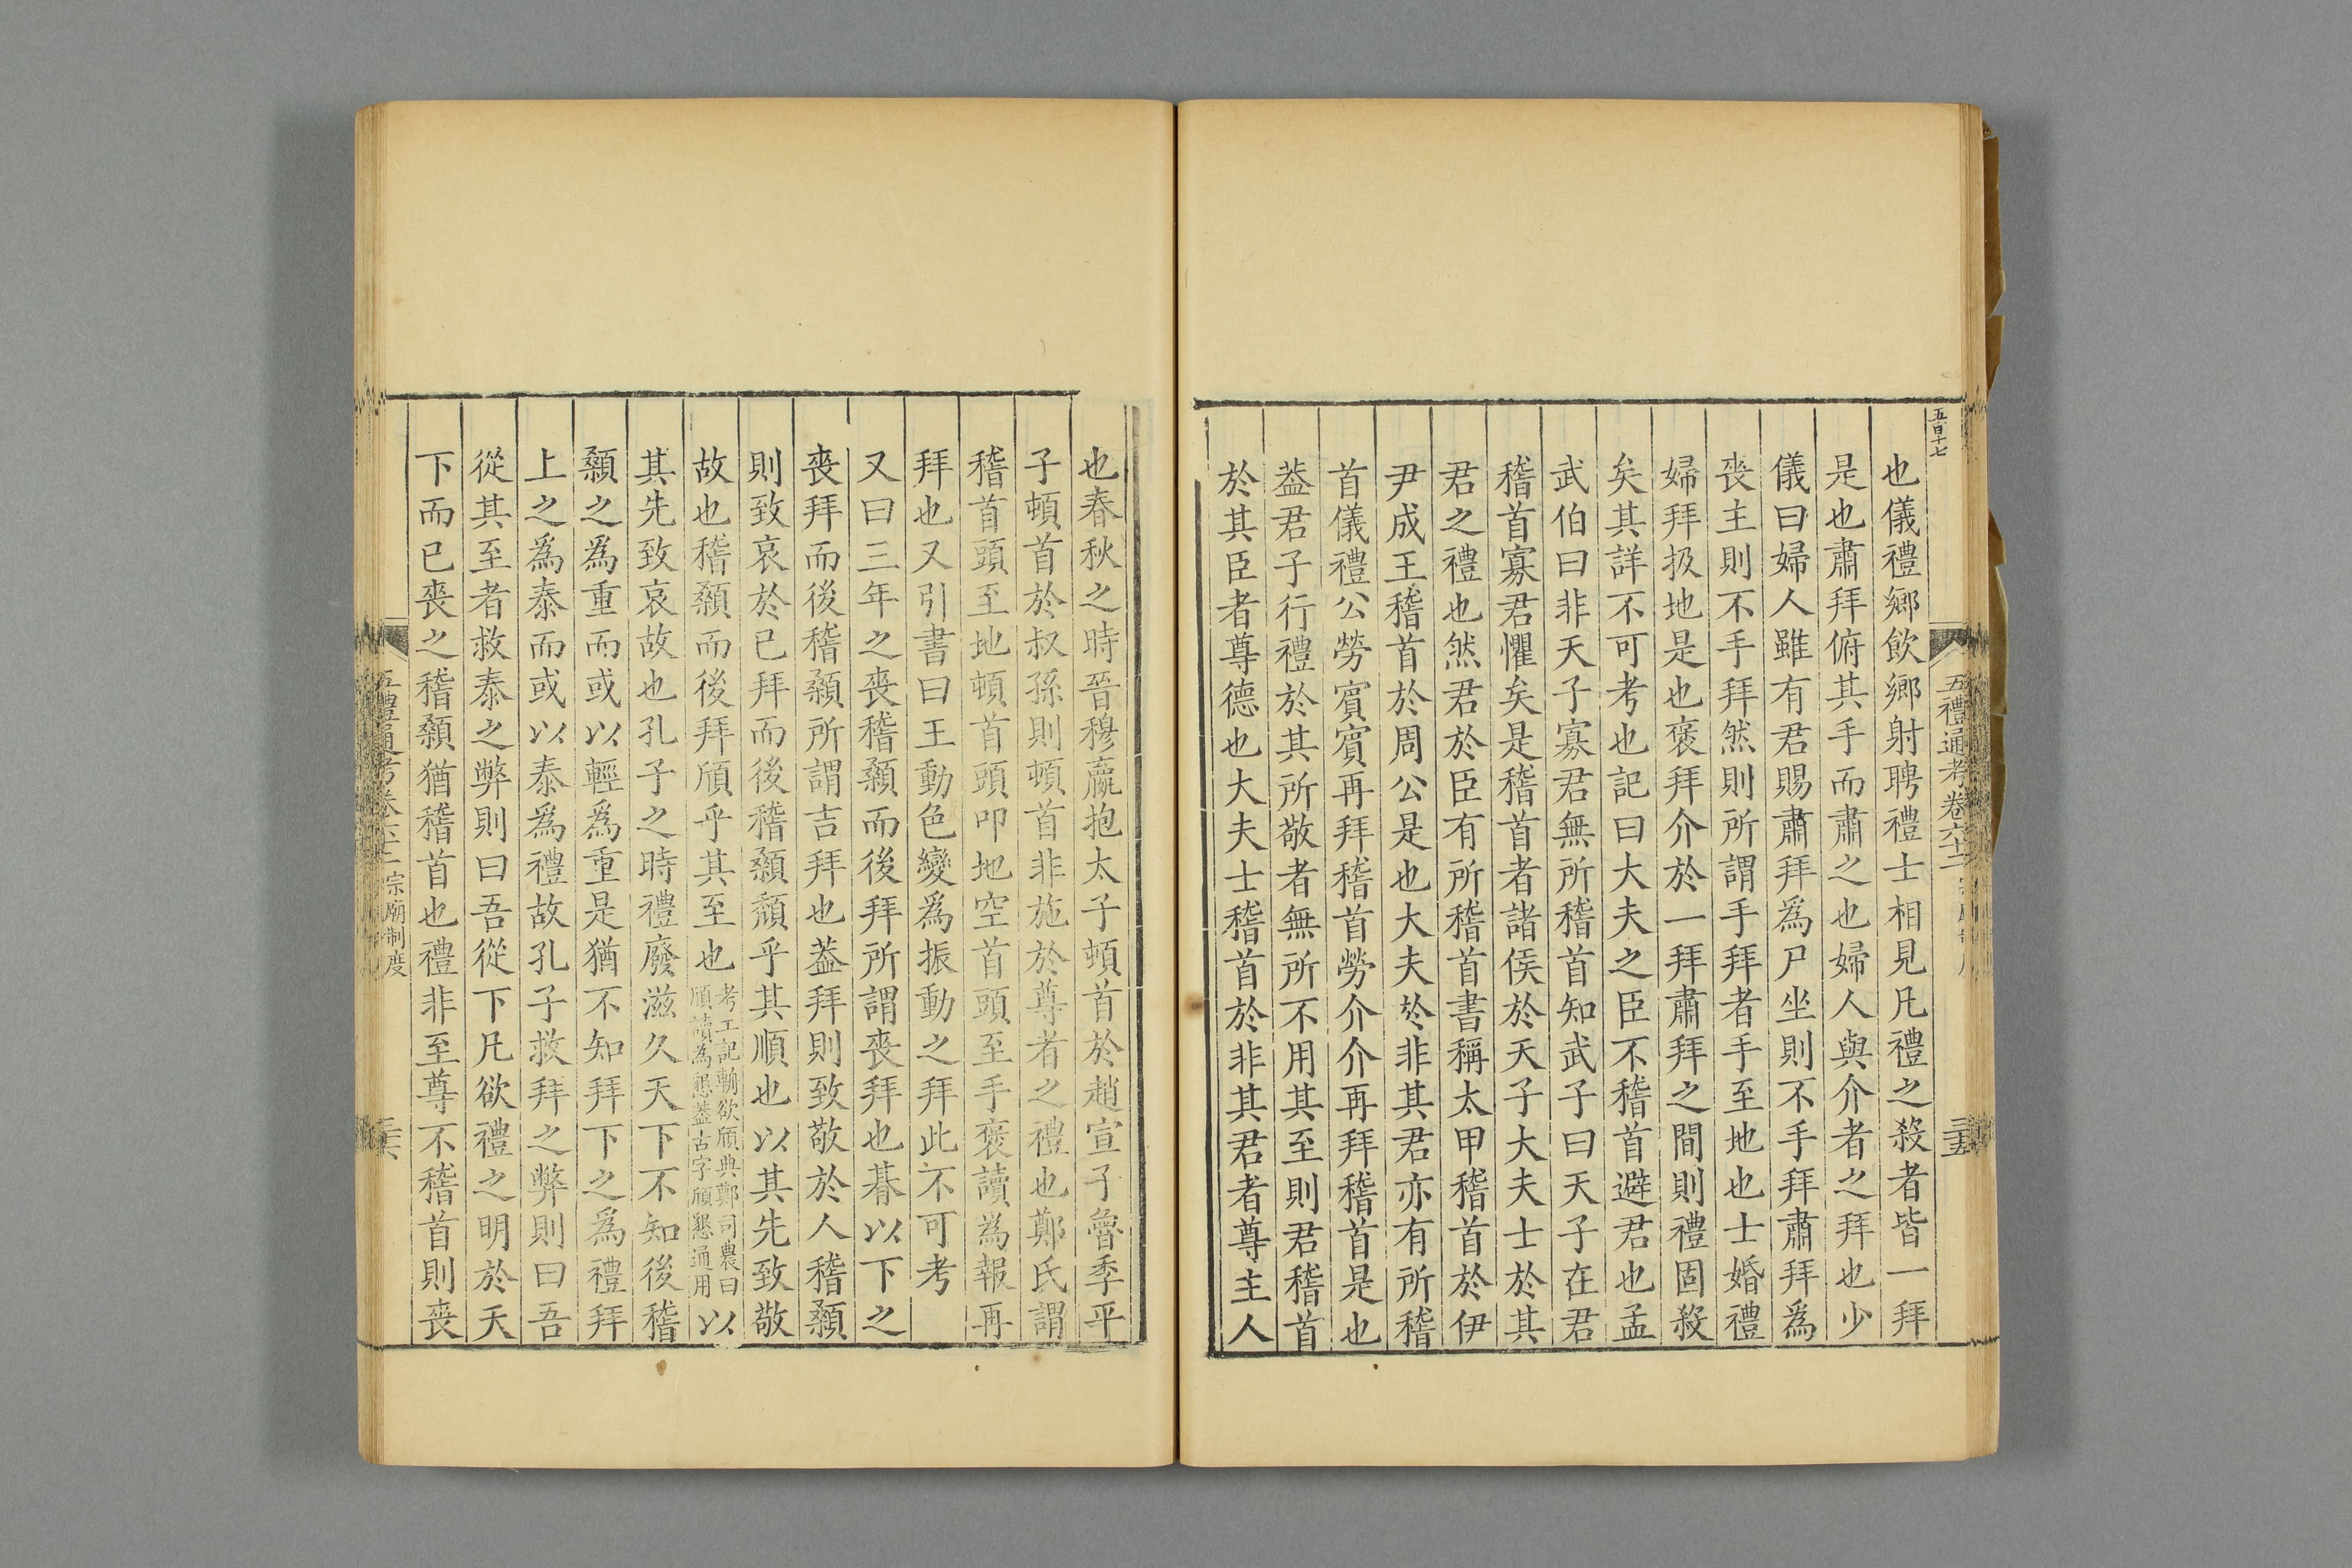 五百十七
五禮通考卷六十二
三十五
也儀禮鄉飲鄉射聘禮士相見凡禮之殺者皆一拜
是也肅拜俯其手而肅之也婦人與介者之拜也少
儀曰婦人雖有君賜肅拜為尸坐則不手拜肅拜為
喪主則不手拜然則所謂手拜者手至地也士婚禮
婦拜扱地是也褒拜介於一拜肅拜之間則禮固殺
矣其詳不可考也記曰大夫之臣不稽首避君也孟
武伯曰非天子寡君無所稽首知武子曰天子在君
稽首寡君懼矣是稽首者諸侯於天子大夫士於其
君之禮也然君於臣有所稽首書稱太甲稽首於伊
尹成王稽首於周公是也大夫於非其君亦有所稽
首儀禮公勞賓賓再拜稽首勞介介再拜稽首是也
葢君子行禮於其所敬者無所不用其至則君稽首
於其臣者尊德也大夫士稽首於非其君者尊主人
也春秋之時晉穆嬴抱太子頓首於趙宣子魯季平
子頓首於叔孫則頓首非施於尊者之禮也鄭氏謂
稽首頭至地頓首頭叩地空首頭至手褒讀為報再
拜也又引書曰王動色變為振動之拜此不可考
又曰三年之喪稽顙而後拜所謂喪拜也朞以下之
喪拜而後稽顙所謂吉拜也葢拜則致敬於人稽顙
則致哀於已拜而後稽顙頹乎其順也以其先致敬
故也稽顙而後拜頎乎其至也考工記輈欲頎典鄭司農曰頎讀為懇葢古字頎懇通用以
其先致哀故也孔子之時禮廢滋久天下不知後稽
顙之為重而或以輕為重是猶不知拜下之為禮拜
上之為泰而或以泰為禮故孔子救拜之弊則曰吾
從其至者救泰之弊則曰吾從下凡欲禮之明於天
下而已喪之稽顙猶稽首也禮非至尊不稽首則喪
五禮通考卷六十二 宗廟制度
三十六